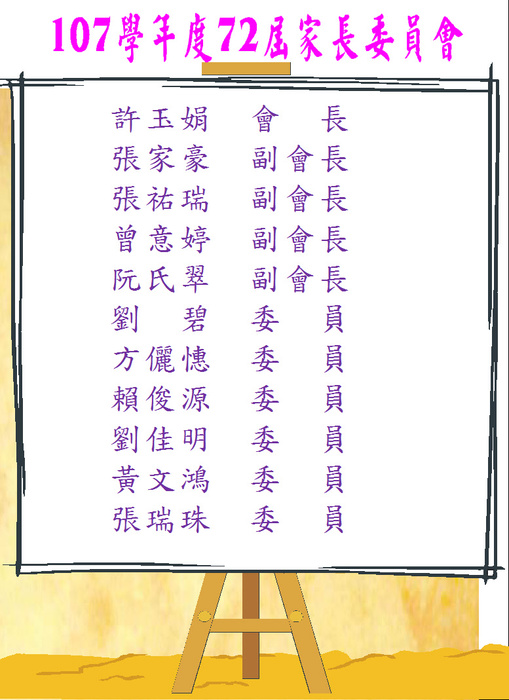 107學年度72屆家長委員會
許玉娟 會長
張家豪 副會長
張祐瑞 副會長
曾意婷 副會長
阮氏翠 副會長
劉碧 委員
方儷憓 委員
賴俊源 委員
劉佳明 委員
黃文鴻 委員
張瑞珠 委員